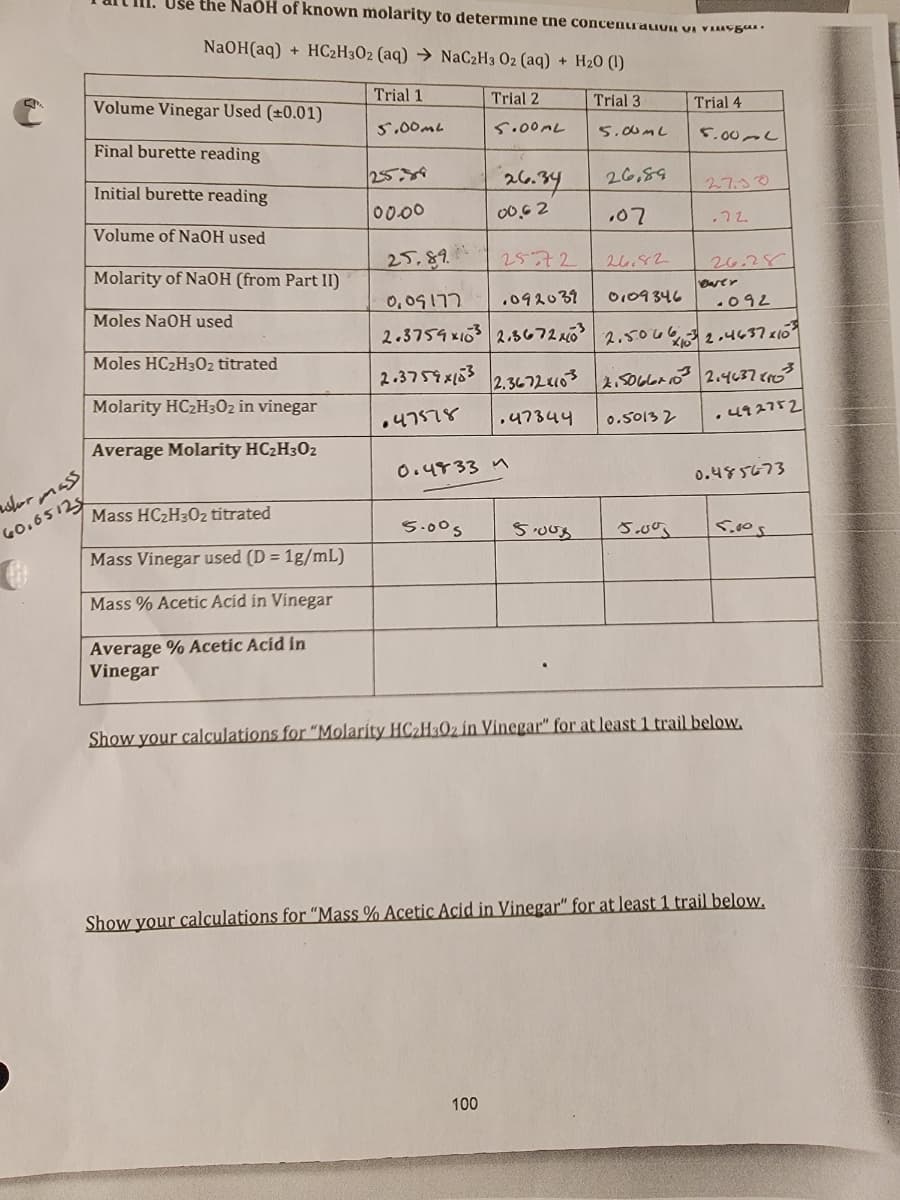 Use the NaOH of known molarity to determine the concentration of vinegar.
NaOH(aq) + HC2H3O2 (aq) → NaC2H3 O2 (aq) + H2O (l)
Trial 1 Trial 2 Trial 3 Trial 4
Volume Vinegar Used (±0.01) 5.00mL 5.00mL 5.00mL 5.00mL
Final burette reading 26.34 26.89
Initial burette reading 00.00 00.62 .07 .72
Volume of NaOH used 25.89 25.72 26.82 26.28
Molarity of NaOH (from Part II) 0.09177 .092039 0.09346 .092
Moles NaOH used 2.3759x10-3 2.3672x10-3 2.5066x10-3 2.4637x10-3
Moles HC2H3O2 titrated 2.3759x10-3 2.3672x10-3 2.5066x10-3 2.4637x10-3
Molarity HC2H3O2 in vinegar .47518 .47344 0.50132 .492752
Average Molarity HC2H3O2 0.4833 0.485673
mass
60.0512g
Mass HC2H3O2 titrated 5.00g 5.00g 5.00g 5.00g
Mass Vinegar used (D = 1g/mL)
Mass % Acetic Acid in Vinegar
Average % Acetic Acid in
Vinegar
Show your calculations for "Molarity HC2H3O2 in Vinegar" for at least 1 trail below.
Show your calculations for "Mass % Acetic Acid in Vinegar" for at least 1 trail below.
100